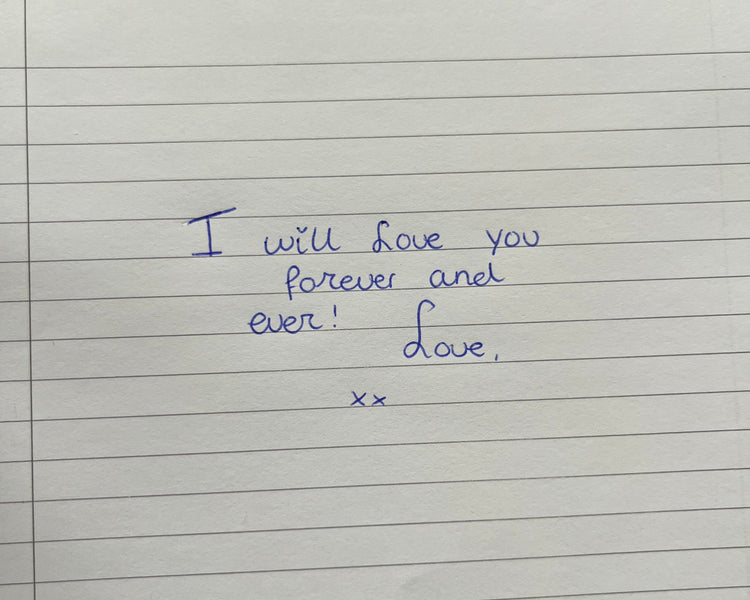 I will Love you
forever and
ever!
Love,
xx